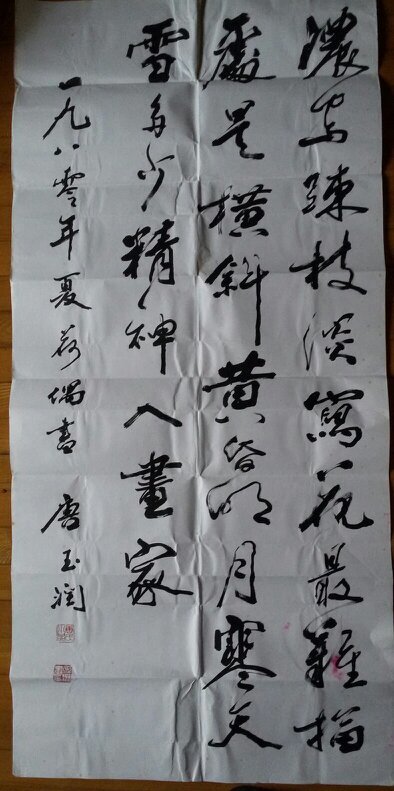 濃写疎枝淡寫花最難描
處是橫斜黃昏明月寒天
雪多少精神入畫家
一九八零年夏荷偶書 唐玉潤